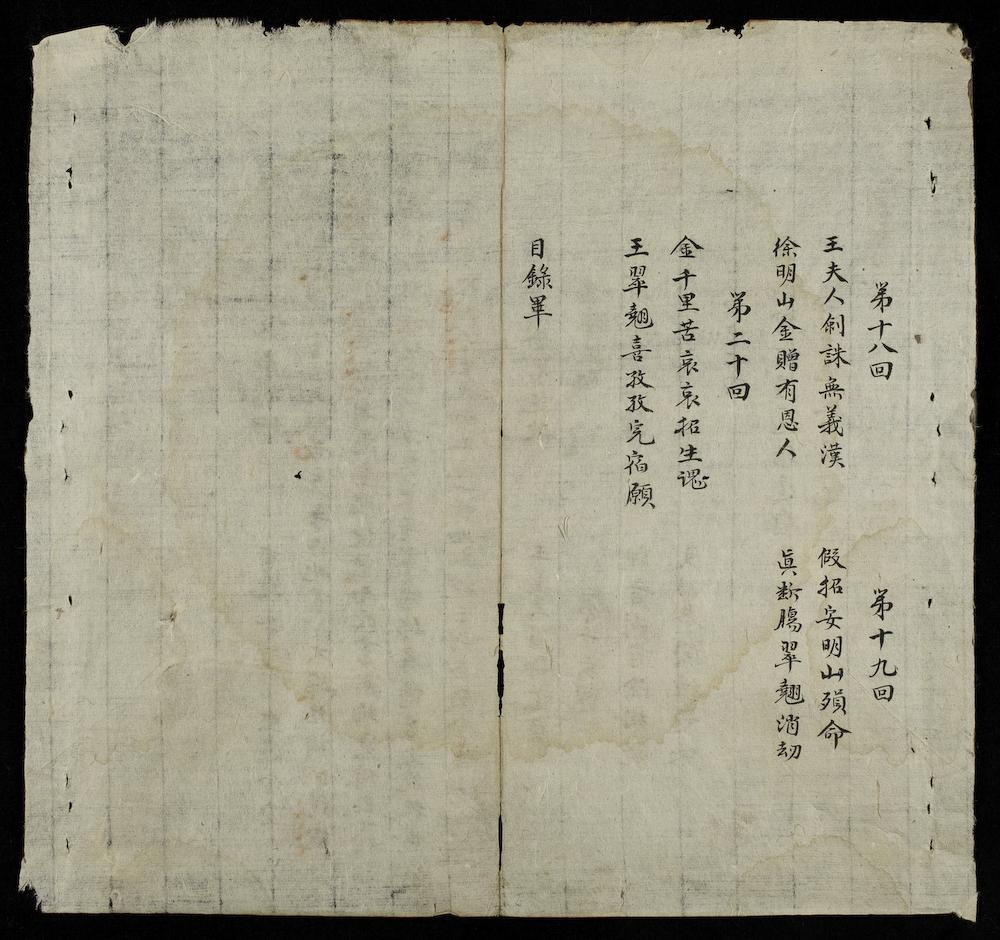 第十八回
王夫人劍誅無義漢
徐明山金贈有恩人
第十九回
假招安明山殞命
眞断腸翠翹消劫
第二十回
金千里苦哀哀招生魂
王翠翹喜孜孜完宿願
目錄畢